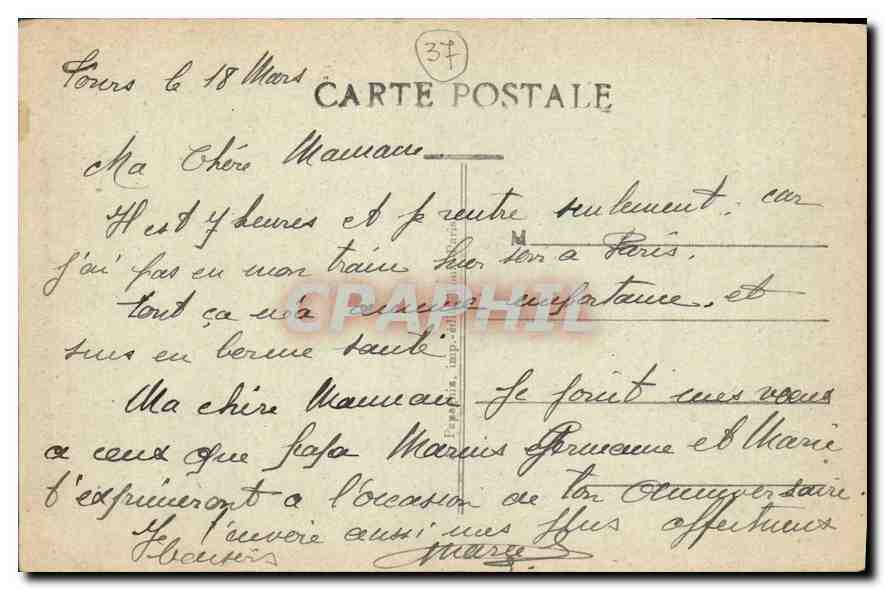 37
Tours le 18 Mars
CARTE POSTALE
Ma Chère Maman
Il est 7 heures et je rentre seulement, car
M
j'ai pas eu mon train hier soir a Paris.
tout ça n'a aucune importance, et
CPAPHIL
suis en bonne santé
Ma chère Maman Je joint mes vœux
a ceux que papa Marius Germaine et Marie
t'exprimeront a l'occasion de ton Anniversaire.
Je t'envoie aussi mes plus affectueux
baisers